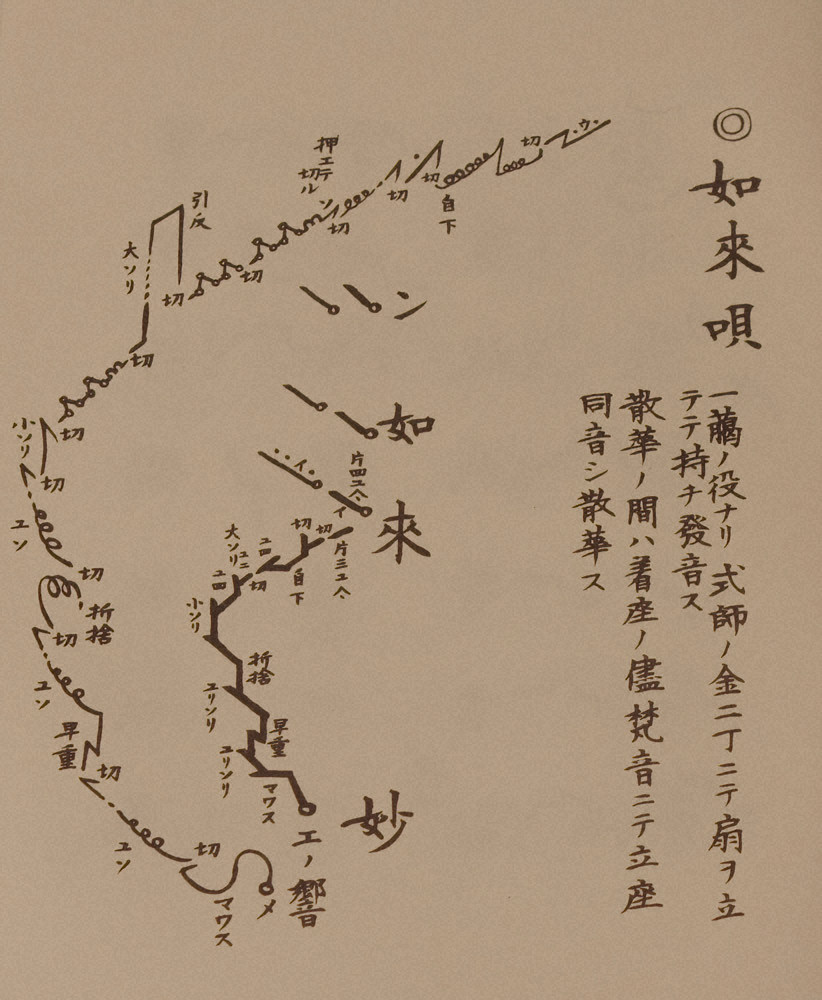 ◎如來唄
一﨟ノ役ナリ 式師ノ金二丁ニテ扇ヲ立
テテ持チ發音ス
散華ノ間ハ着座ノ儘梵音ニテ立座
同音シ散華ス
ン
如
來
妙
ウ
切
自下
切
切
切
押エテ
切ル
ン
切
切
引反
大ソリ
切
切
小ソリ
切
ユン
切
折捨
切
ユン
早重
切
ユン
切
マワス
メ
片四ユ合
イ
イ
片三ユ合
切
切
自下
切
ユ四
ユニ
大ソリ
ユ四
小ソリ
折捨
ユリソリ
早重
ユリソリ
マワス
エノ響